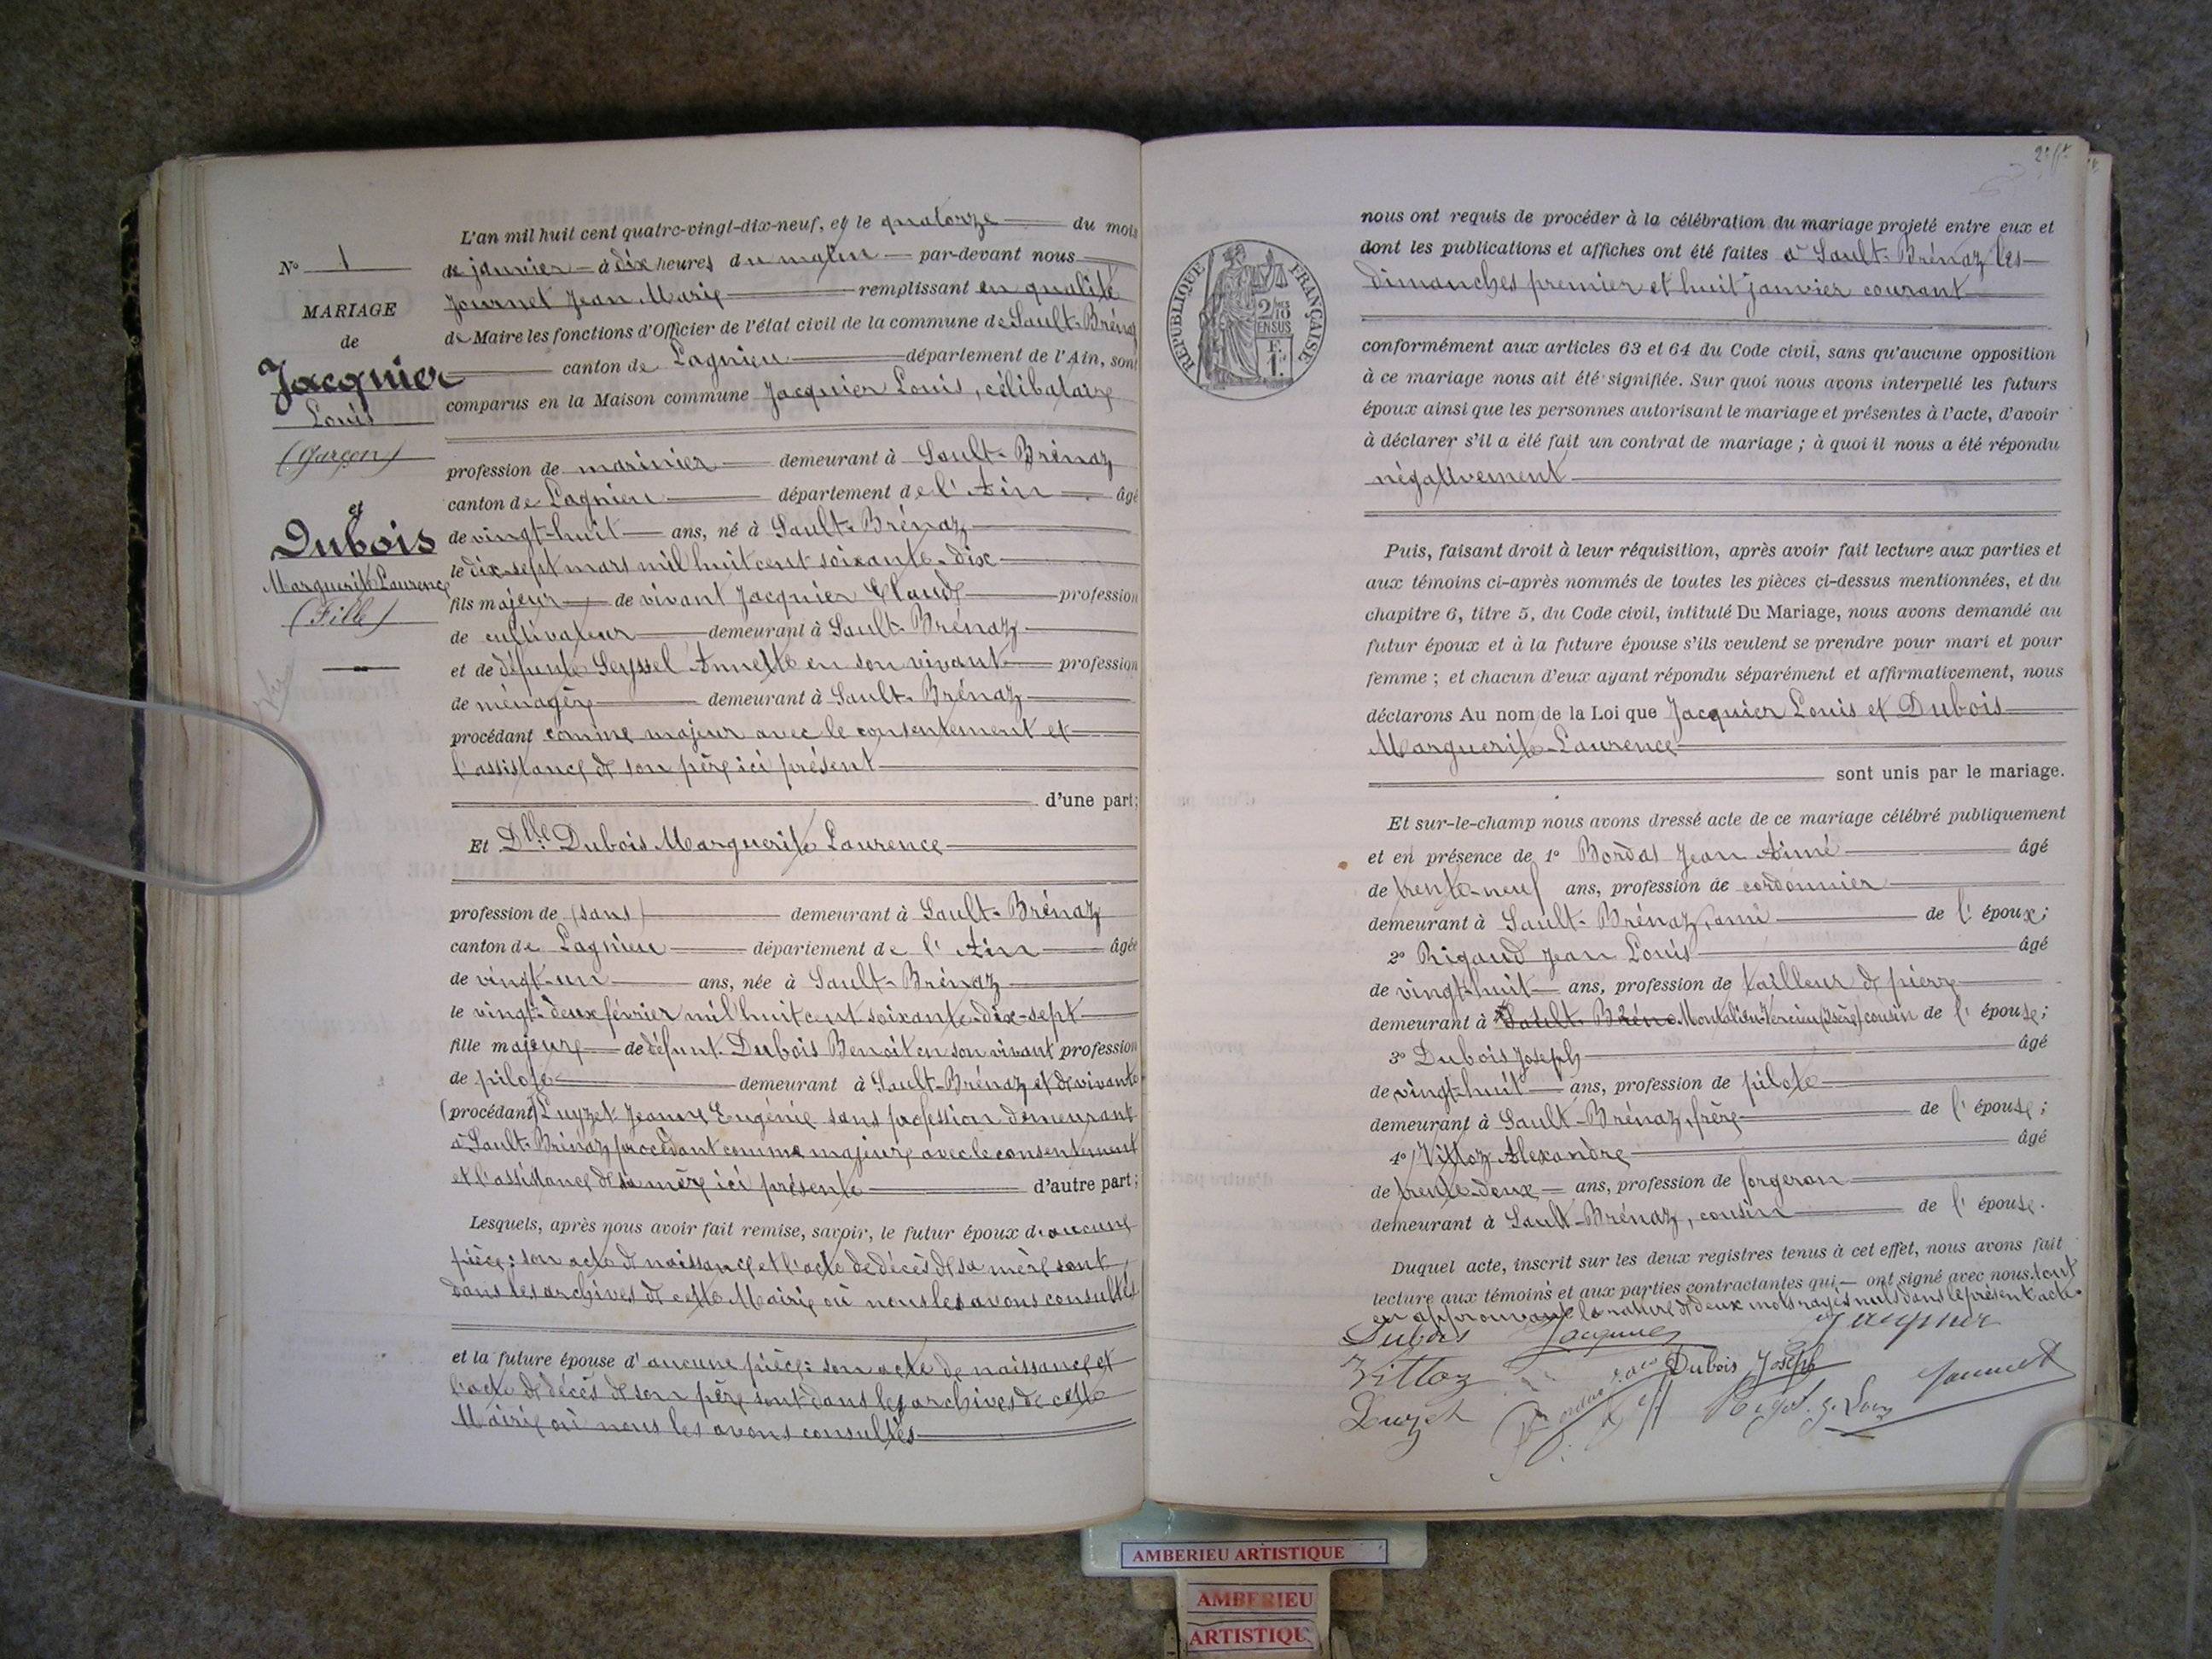 N° 1
MARIAGE
de
Jacquier
Louis
(Garçon)
et
Dubois
Marguerite Laurence
(Fille)
L'an mil huit cent quatre-vingt-dix-neuf, et le quatorze du mois
de janvier à dix heures du matin par-devant nous
Journet Jean Marie remplissant en qualité
de Maire les fonctions d'Officier de l'état civil de la commune de Sault-Brénaz
canton de Lagnieu département de l'Ain, sont
comparus en la Maison commune Jacquier Louis, célibataire
profession de marinier demeurant à Sault-Brénaz
canton de Lagnieu département de l'Ain âgé
de vingt-huit ans, né à Sault-Brénaz
le dix-sept mars mil huit cent soixante-dix
fils majeur de vivant Jacquier Claude profession
de cultivateur demeurant à Sault-Brénaz
et de défunte Seyssel Annette en son vivant profession
de ménagère demeurant à Sault-Brénaz
procédant comme majeur avec le consentement et
l'assistance de son père ici présent
d'une part;
Et Dlle Dubois Marguerite Laurence
profession de (sans) demeurant à Sault-Brénaz
canton de Lagnieu département de l'Ain âgée
de vingt-un ans, née à Sault-Brénaz
le vingt-deux février mil huit cent soixante-dix-sept
fille majeure de défunt Dubois Benoit en son vivant profession
de pilote demeurant à Sault-Brénaz et de vivante
(procédant) Luyzet Jeanne Eugénie sans profession demeurant
à Sault-Brénaz procédant comme majeure avec le consentement
et l'assistance de sa mère ici présente d'autre part;
Lesquels, après nous avoir fait remise, savoir, le futur époux d'aucune
pièce: son acte de naissance et l'acte de décès de sa mère sont
dans les archives de cette Mairie où nous les avons consultés
et la future épouse d'aucune pièce: son acte de naissance et
l'acte de décès de son père sont dans les archives de cette
Mairie où nous les avons consultés
RÉPUBLIQUE FRANÇAISE
2/10
EN SUS
nous ont requis de procéder à la célébration du mariage projeté entre eux et
dont les publications et affiches ont été faites à Sault-Brénaz les
dimanches premier et huit janvier courant
conformément aux articles 63 et 64 du Code civil, sans qu'aucune opposition
à ce mariage nous ait été signifiée. Sur quoi nous avons interpellé les futurs
époux ainsi que les personnes autorisant le mariage et présentes à l'acte, d'avoir
à déclarer s'il a été fait un contrat de mariage; à quoi il nous a été répondu
négativement
Puis, faisant droit à leur réquisition, après avoir fait lecture aux parties et
aux témoins ci-après nommés de toutes les pièces ci-dessus mentionnées, et du
chapitre 6, titre 5, du Code civil, intitulé Du Mariage, nous avons demandé au
futur époux et à la future épouse s'ils veulent se prendre pour mari et pour
femme; et chacun d'eux ayant répondu séparément et affirmativement, nous
déclarons Au nom de la Loi que Jacquier Louis et Dubois
Marguerite-Laurence
sont unis par le mariage.
Et sur-le-champ nous avons dressé acte de ce mariage célébré publiquement
et en présence de 1° Bordas Jean Aimé âgé
de trente-neuf ans, profession de cordonnier
demeurant à Sault-Brénaz, ami de l'époux;
2° Rigaud Jean Louis âgé
de vingt-huit ans, profession de tailleur de pierre
demeurant à Sault-Bréna Montalieu-Vercieu (Isère) cousin de l'épouse;
3° Dubois Joseph âgé
de vingt-huit ans, profession de pilote
demeurant à Sault-Brénaz, frère de l'épouse;
4° Vittoz Alexandre âgé
de trente-deux ans, profession de forgeron
demeurant à Sault-Brénaz, cousin de l'épouse.
Duquel acte, inscrit sur les deux registres tenus à cet effet, nous avons fait
lecture aux témoins et aux parties contractantes qui ont signé avec nous, tout
en approuvant la rature de deux mots rayés nuls dans le présent acte.
Dubois Jacquier Jacquier
Vittoz Dubois Joseph
Luyzet Journet
AMBERIEU ARTISTIQUE
AMBERIEU
ARTISTIQU